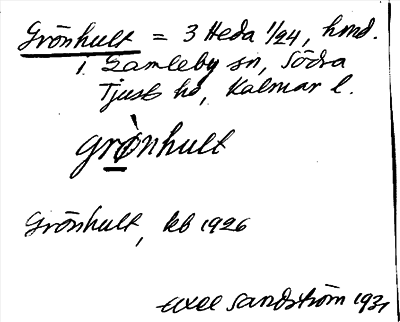 Grönhult = 3 Heda 1/24, hmd.
i Gamleby sn, Södra
Tjust hd, Kalmar l.
grònhult
Grönhult, kb 1926
Axel Sandström 1931